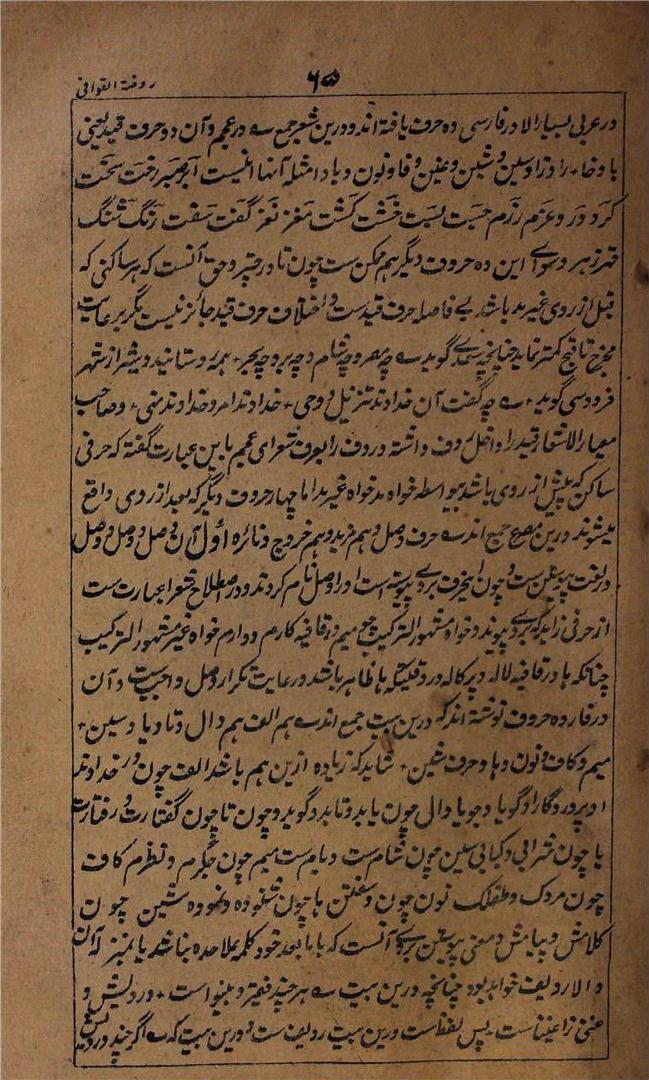 ۶۵
روضة القوافی
در عربی بسیار الا در فارسی ده حرف یافته اند و درین شعر جمع ے در عجم و آن ده حرف قید یعنی
با و خا، را و زا و سین و شین و غین و فا و نون و ها و امثله آنها اینست ابر صبر رخت سخت
کرد درد عزم رزم جست بست خشت کشت مغز نغز گفت سفت رنگ شنگ
قهر زهر و سوای این ده حروف دیگر هم ممکن ست چون تا در چتر و حق آنست که هر ساکنی که
قبل از روی غیر مد باشد بے فاصله حرف قید ست و اختلاف حرف قید جائز نیست مگر برعایت
مخرج تا قبح کمتر نماید چنانچه سعدی گوید ے چه مصر و چه شام و چه بر و چه بحر، همه روستایند و شیراز شهر
فردوسی گوید، ے چه گفت آن خداوند تنزیل و وحی، خداوند امر و خداوند نهی، و صاحب
معیار الاشعار قید را داخل ردف داشته و ردف را بعرف شعرای عجم باین عبارت گفته که حرفی
ساکن که پیش از روی باشد بیواسطه خواه مد خواه غیر مد اما چهار حروف دیگر که بعد از روی واقع
میشوند درین مصرع جمع اند ے حرف وصل و هم مزید و هم خروج و نائره اول آن وصل و وصل
در لغت پیوستن ست و چون این حرف بروی پیوسته است او را وصل نام کردند و در اصطلاح شعرا عبارت ست
از حرفی زاید که بروی پیوندد خواه مشهور الترکیب چون میم در قافیه کارم و دارم خواه غیر مشهور الترکیب
چنانکه ها در قافیه لاله و پرکاله در وقتیکه ها ظاهر باشد و رعایت تکرار وصل واجب ست و آن
در فارسی ده حروف نوشته اند که درین بیت جمع اند ے هم الف هم دال و تا و یا و سین،
میم و کاف و نون و ها و حرف شین، شاید که زیاده ازین هم باشد الف چون در خداوند
ا و پروردگارا و گویا و جویا دال چون یابد و تابد و گوید و چون تا چون گفتارت و رفتارت
یا چون شرابی و کبابی سین چون شام ست و بام ست میم چون جگرم و نظرم کاف
چون مردک و طفلک نون چون و گفتن ها چون شنوده و نموده شین چون
کلامش و پیامش و معنی پیوستن بروی آنست که با ما بعد خود کلمه علاحده نباشد یا بمنزله آن
و الا ردیف خواهد بود چنانچه درین بیت ے هر چند فقیر و بینوا است، درویش و
غنی ز اغنیا است، پس لفظ ست درین بیت ردیف ست و درین بیت که ے اگر چند درویش